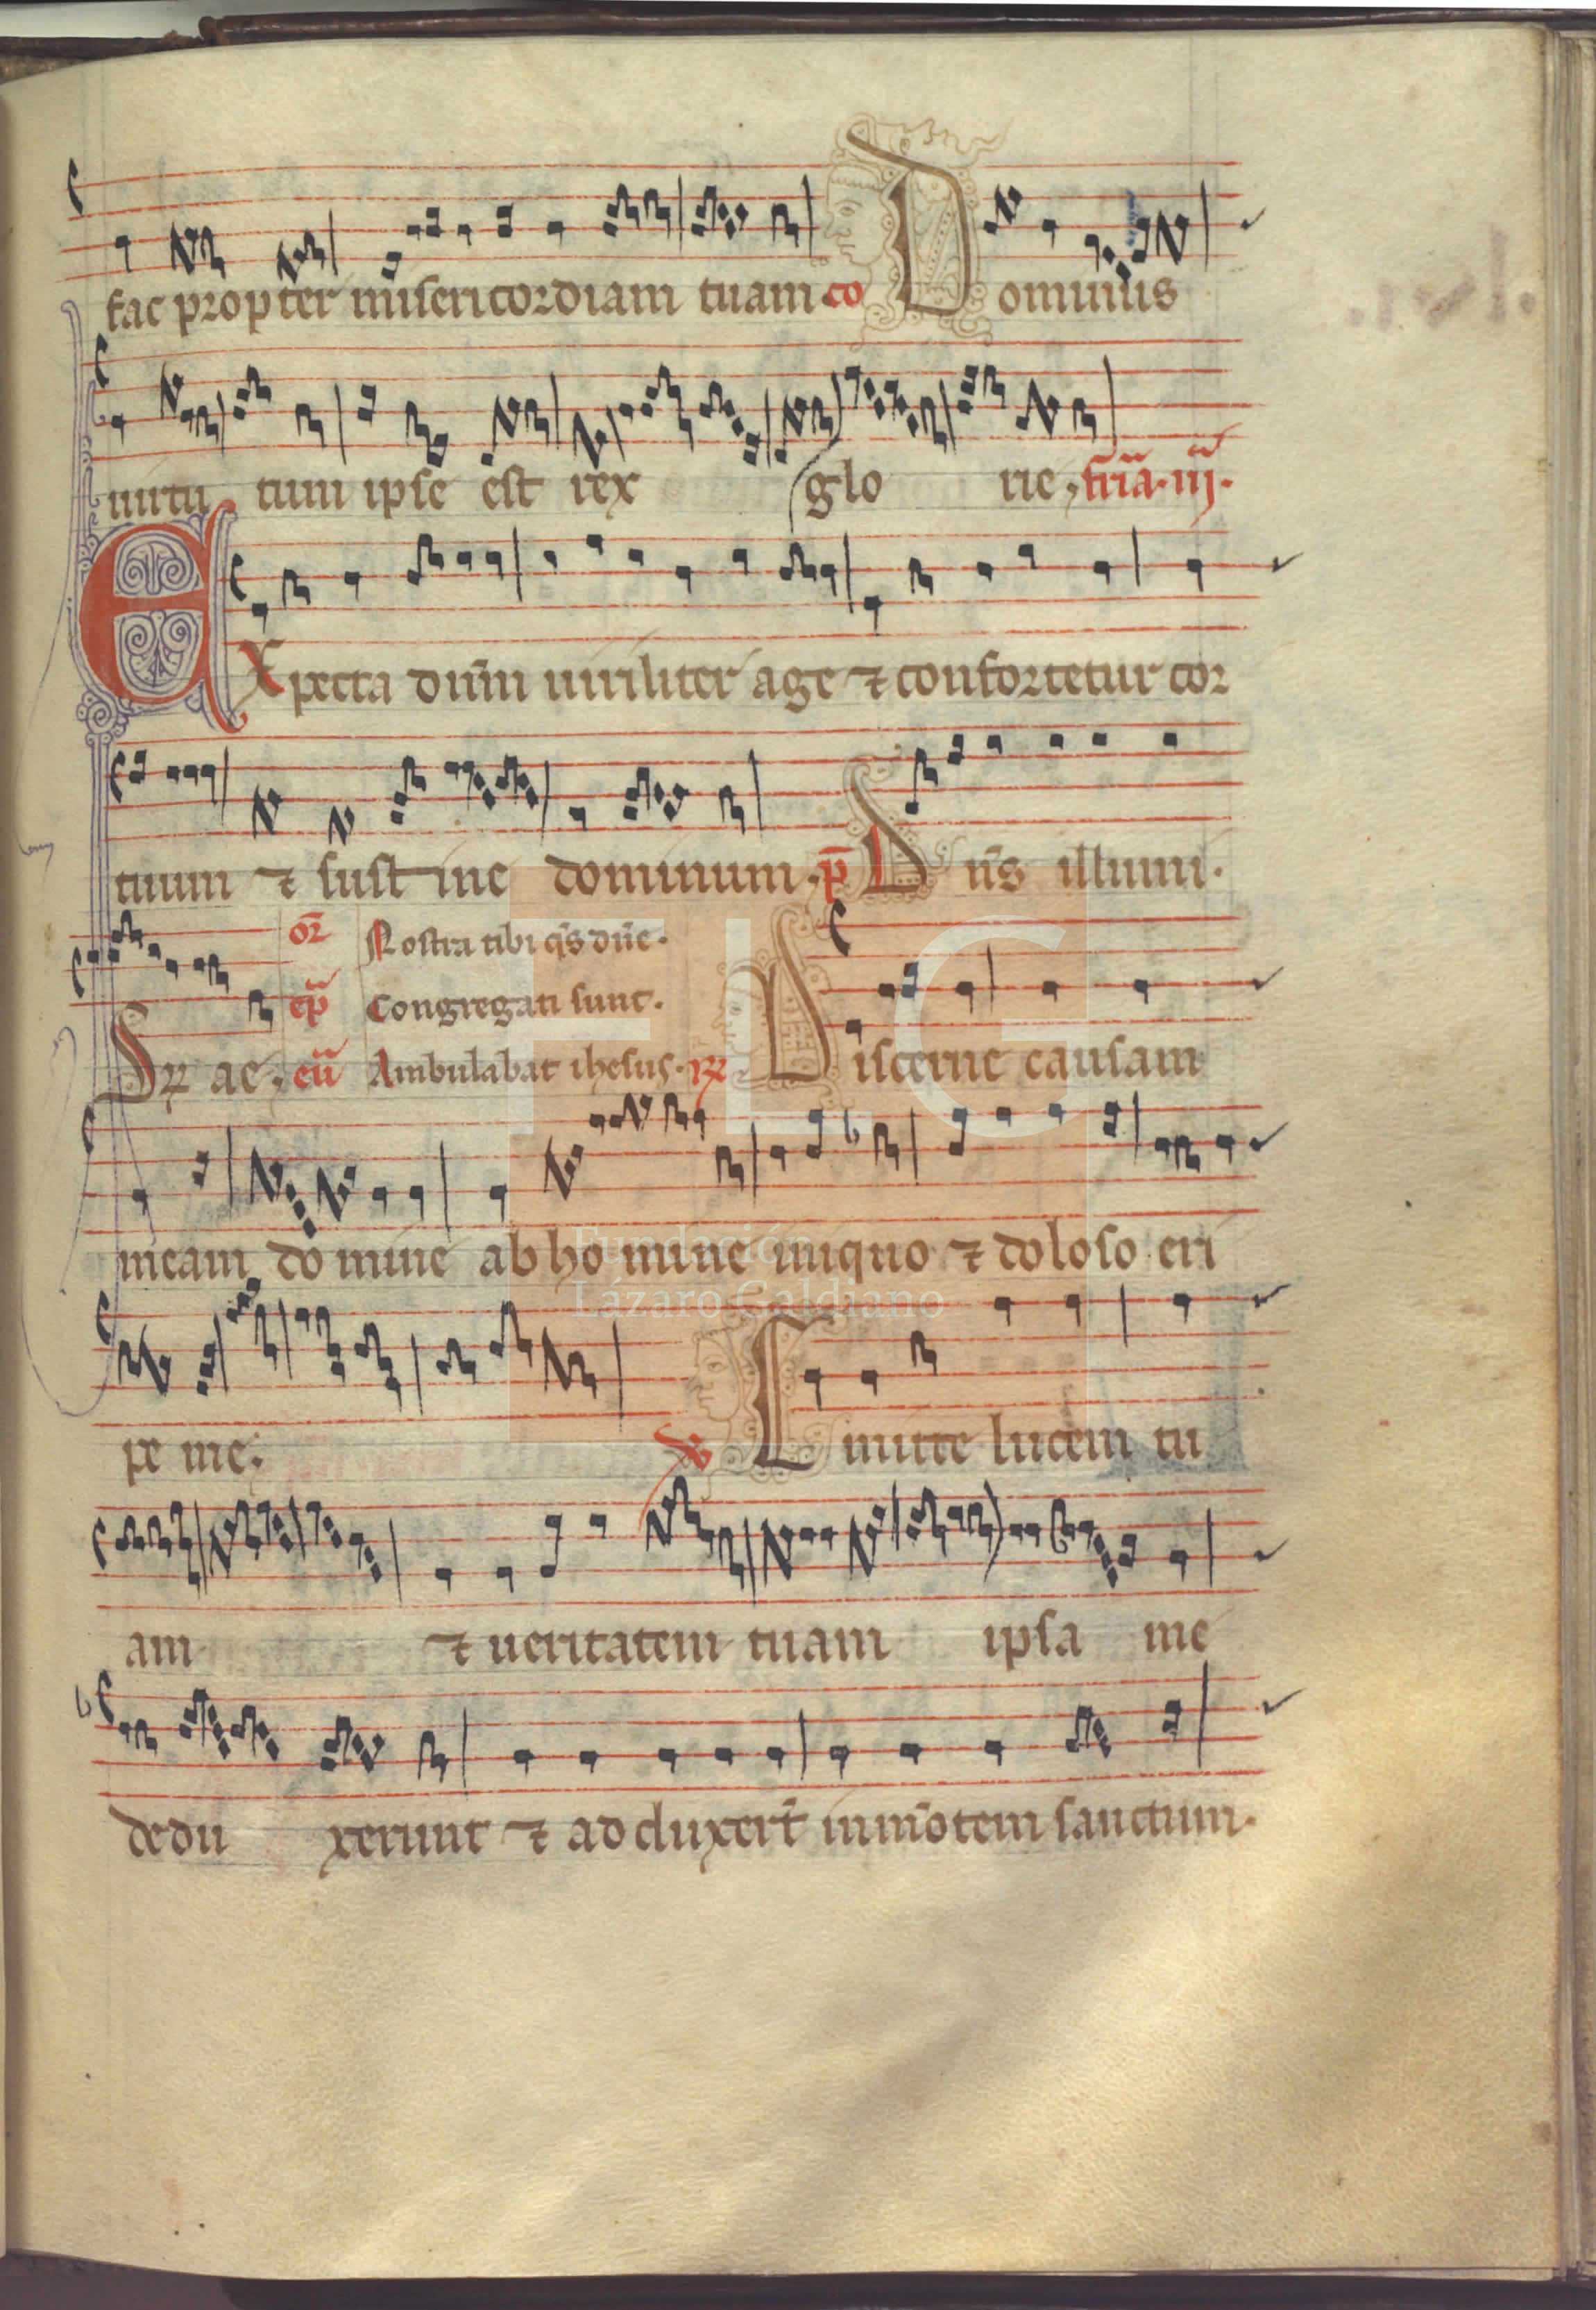 fac propter misericordiam tuam co Dominus
uirtu tum ipse est rex glo rie, fr̃ia. iij.
EXpecta dñm uiriliter age ⁊ confortetur cor
tuum ⁊ sustine dominum. p̄ Dn̄s illumi.
or̃ Nostra tibi q̄s dn̄e.
ep̃ Congregati sunt.
Or ae. eũ Ambulabat ihesus. R Discerne causam
meam domine ab homine iniquo ⁊ doloso eri
pe me. V Emitte lucem tu
am ⁊ ueritatem tuam ipsa me
dedu xerunt ⁊ adduxert̄ in mōtem sanctum.
FLG
Fundación
Lázaro Galdiano